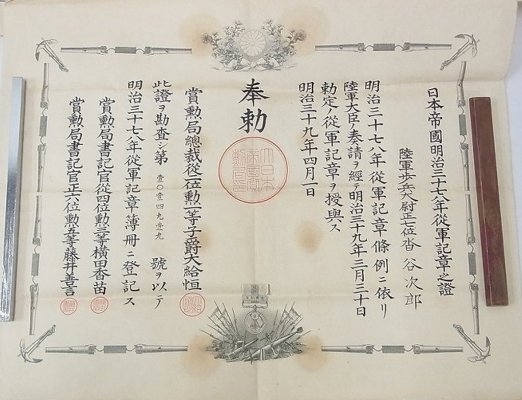 日本帝國明治三十七八年從軍記章之證
陸軍歩兵大尉正七位沓谷次郎
明治三十七八年從軍記章條例ニ依リ
陸軍大臣ノ奏請ヲ經テ明治三十九年三月三十日
勅定ノ從軍記章ヲ授與ス
明治三十九年四月一日
奉勅
賞勲局總裁從二位勲一等子爵大給恒
此證ヲ勘査シ第 壹〇四九 號ヲ以テ
明治三十七八年從軍記章簿冊ニ登記ス
賞勲局書記官從四位勲三等橫田香苗
賞勲局書記官正六位勲五等藤井善言